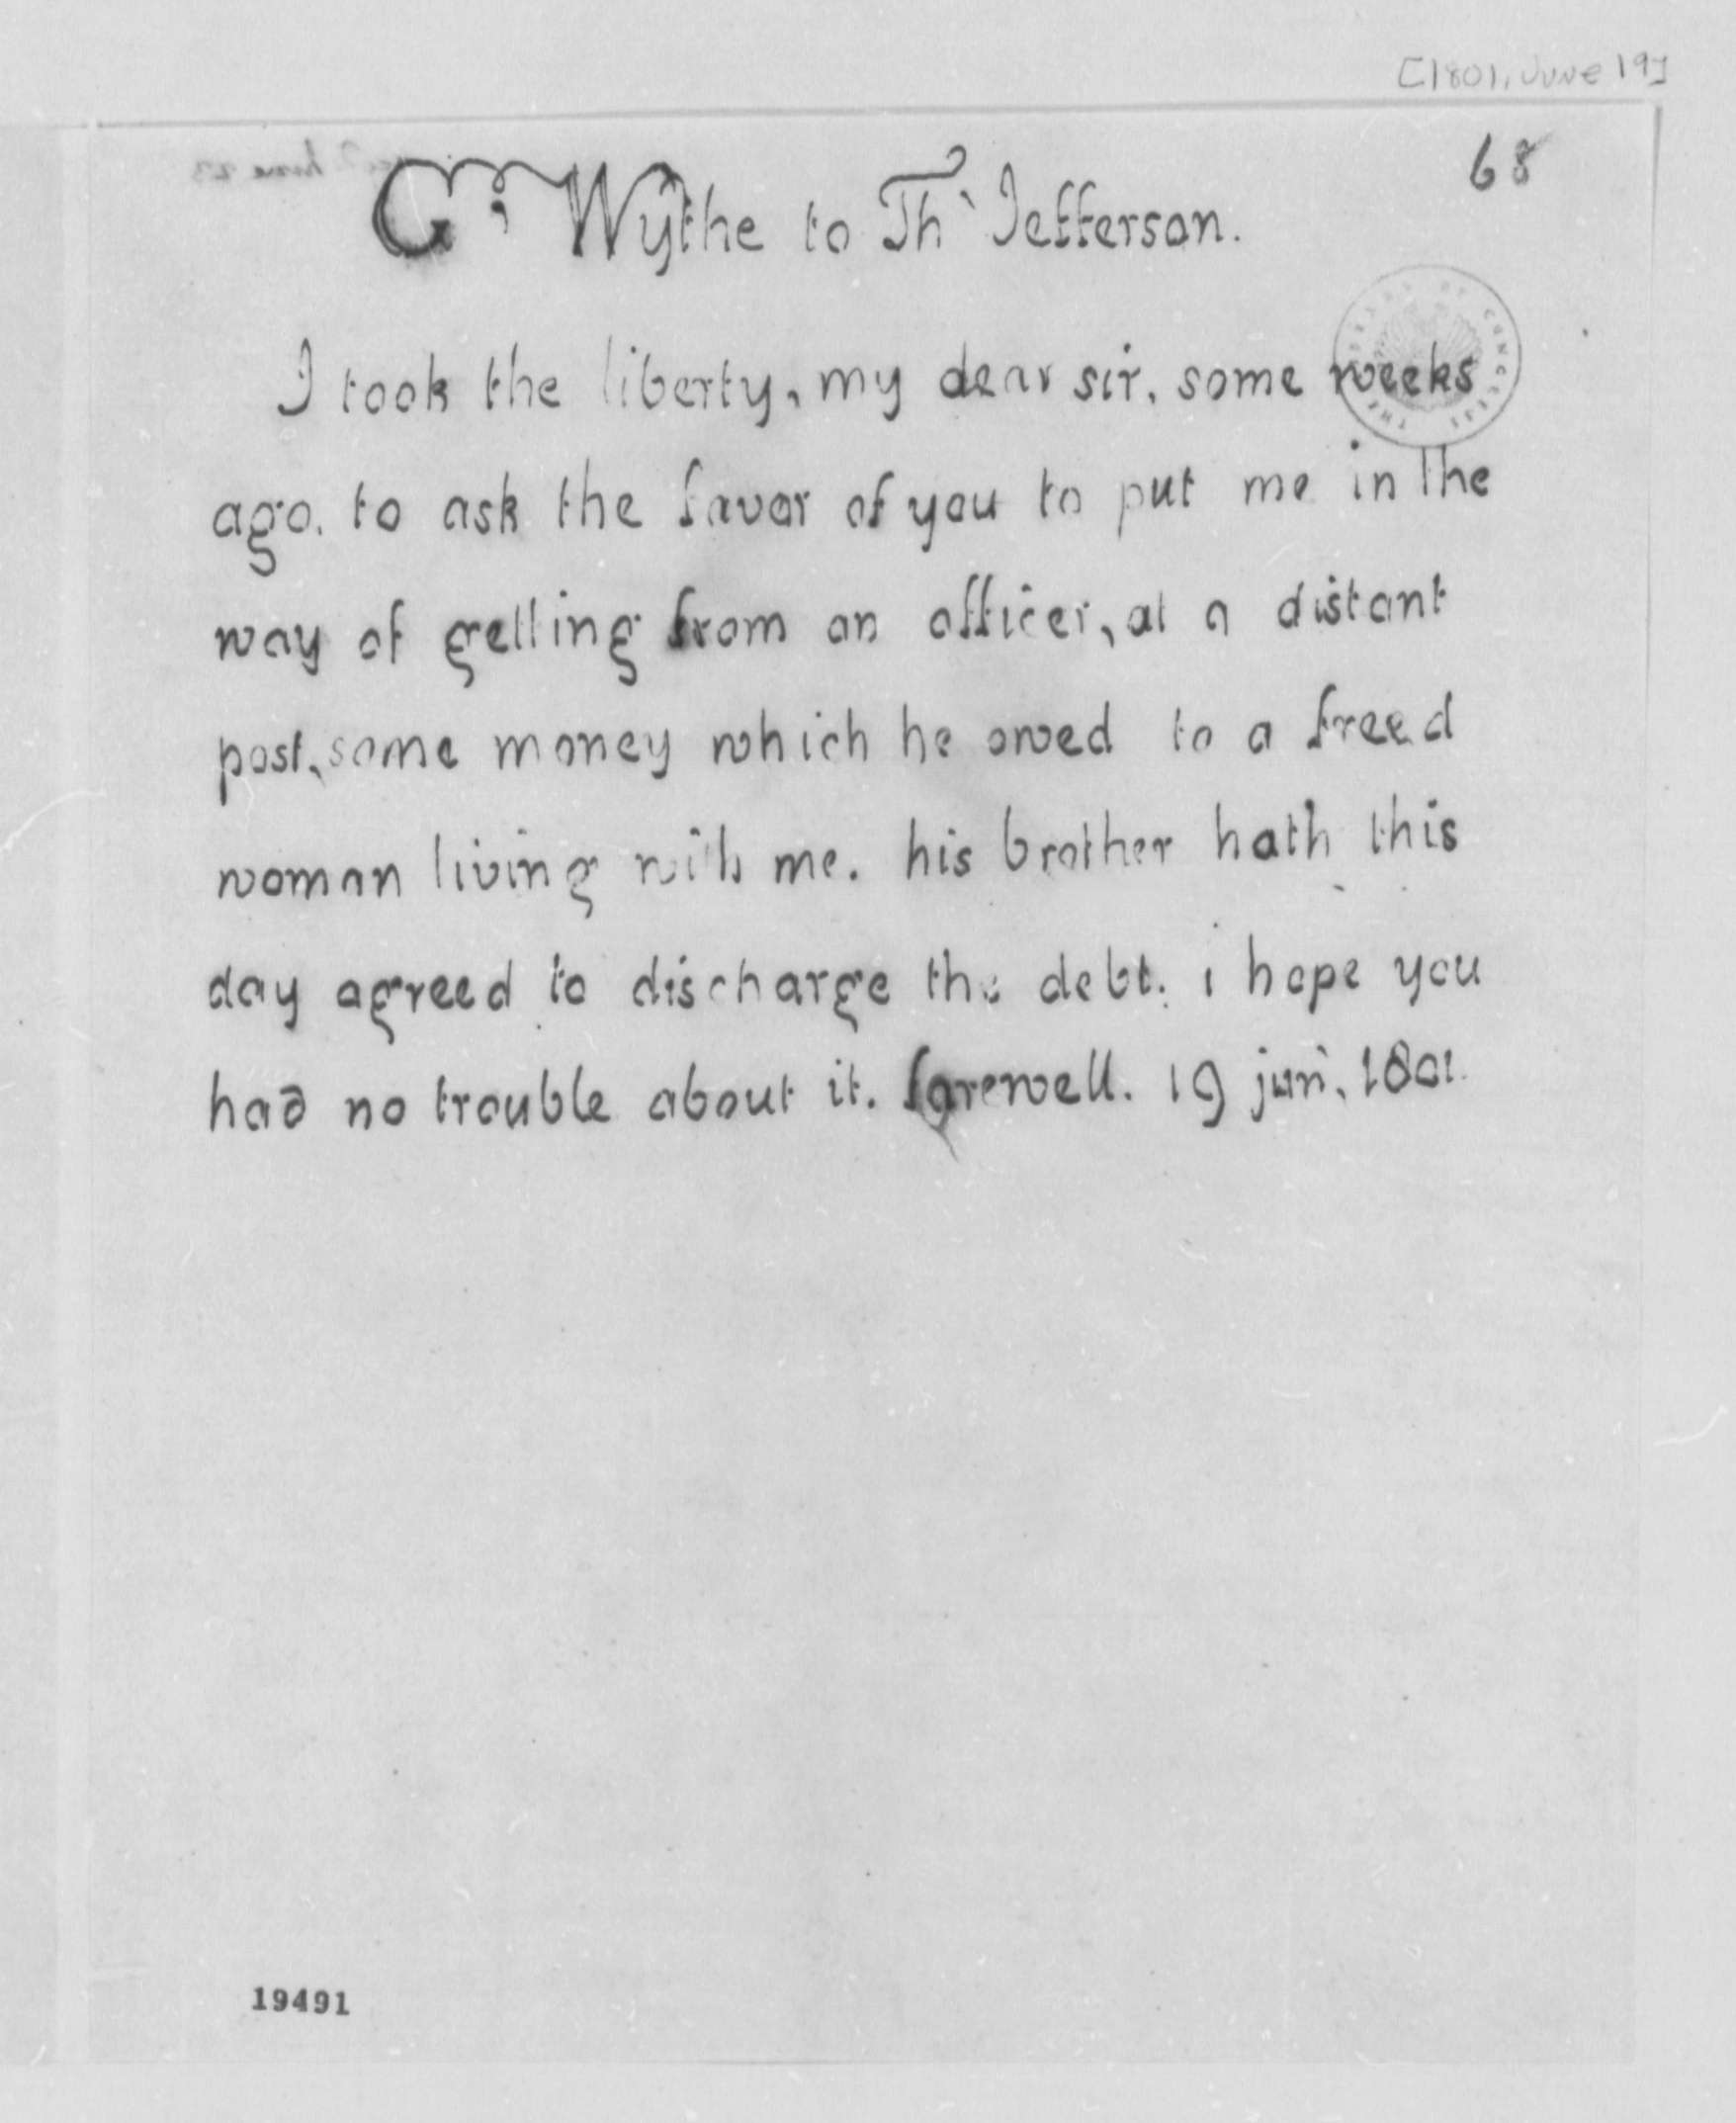 [1801, June 19]
68
G' Wythe to Th' Jefferson.
I took the liberty, my dear sir, some weeks
ago, to ask the favor of you to put me in the
way of getting from an officer, at a distant
post, some money which he owed to a freed
woman living with me. his brother hath this
day agreed to discharge the debt. i hope you
had no trouble about it. farewell. 19 jun', 1801.
19491